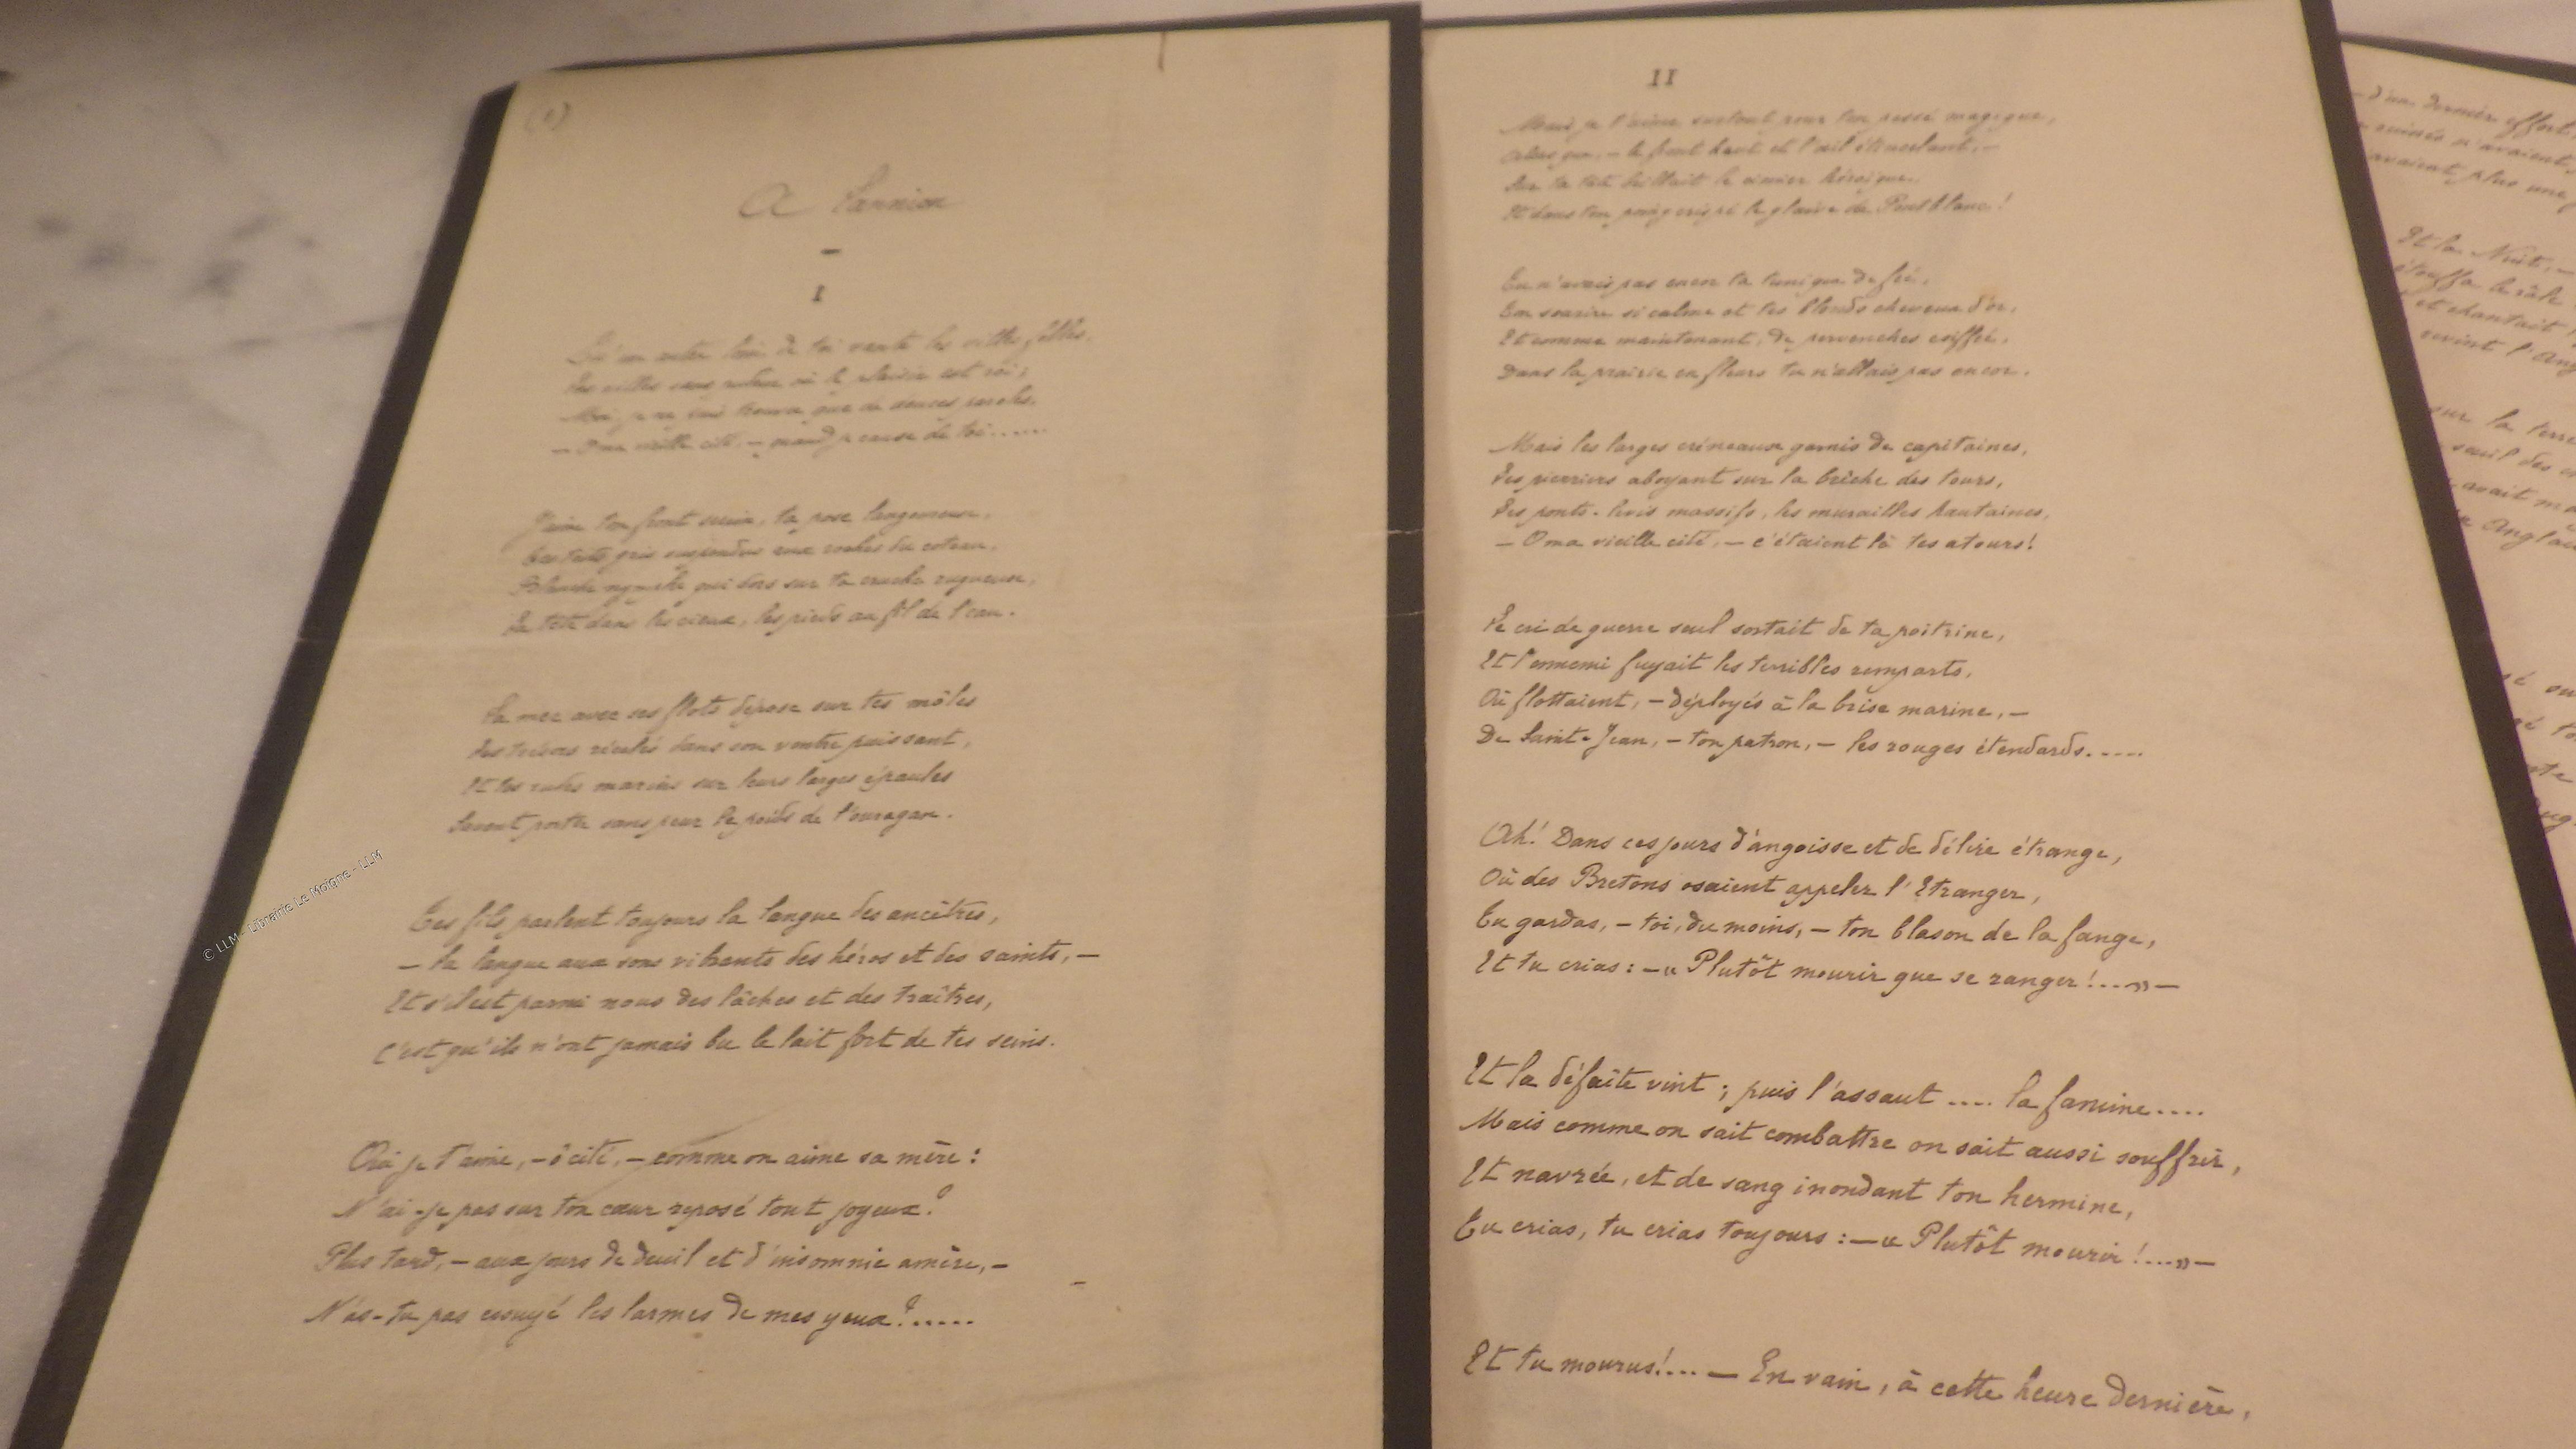 (1)
A Lannion
—
I
Qu'un autre loin de toi vante les villes folles,
Les villes sans où le plaisir est roi ;
Moi, je ne trouve que de douces paroles,
— O ma vieille cité, — quand je cause de toi......
J'aime ton front serein, ta pose langoureuse,
Ces toits gris suspendus aux roches du coteau,
Blanche nymphe qui dors sur ta couche rugueuse,
La tête dans les cieux, les pieds au fil de l'eau.
La mer avec ses flots dépose sur tes môles
Des trésors récoltés dans son ventre puissant,
Et tes rudes marins sur leurs larges épaules
Savent porter sans peur le poids de l'ouragan.
Tes fils parlent toujours la langue des ancêtres,
— La langue aux sons vibrants des héros et des saints, —
Et s'il est parmi nous des lâches et des traîtres,
C'est qu'ils n'ont jamais bu le lait fort de tes seins.
Oui je t'aime, — ô cité, — comme on aime sa mère :
N'ai-je pas sur ton cœur reposé tout joyeux ?
Plus tard, — aux jours de deuil et d'insomnie amère, —
N'as-tu pas essuyé les larmes de mes yeux ?.....
© LLM - Librairie Le Moigne - LLM
II
Mais je t'aime surtout pour ton passé magique,
Alors que, — le front haut et l'œil étincelant, —
Sur ta tête brillait le cimier héroïque,
Et dans ton poing crispé le glaive de Pontblanc !
Tu n'avais pas encor ta tunique de fée,
Ton sourire si calme et tes blonds cheveux d'or,
Et comme maintenant, de pervenches coiffée,
Dans la prairie en fleurs tu n'allais pas encor.
Mais les larges créneaux garnis de capitaines,
Les pierriers aboyant sur la brèche des tours,
Les ponts-levis massifs, les murailles hautaines,
— O ma vieille cité, — c'étaient là tes atours !
Le cri de guerre seul sortait de ta poitrine,
Et l'ennemi fuyait les terribles remparts,
Où flottaient, — déployés à la brise marine, —
De Saint-Jean, — ton patron, — les rouges étendards.....
Ah ! Dans ces jours d'angoisse et de délire étrange,
Où des Bretons osaient appeler l'Etranger,
Tu gardas, — toi, du moins, — ton blason de la fange,
Et tu crias : — « Plutôt mourir que se ranger !... » —
Et la défaite vint ; puis l'assaut .... la famine ....
Mais comme on sait combattre on sait aussi souffrir,
Et navrée, et de sang inondant ton hermine,
Tu crias, tu crias toujours : — « Plutôt mourir !.... » —
Et tu mourus !.... — En vain, à cette heure dernière,
d'un dernier effort
n'avaient
avaient plus une
Et la Nuit, —
étouffa le râle
et chantait
revint l'Ang
sur la terre
seuil des
avait
Anglai